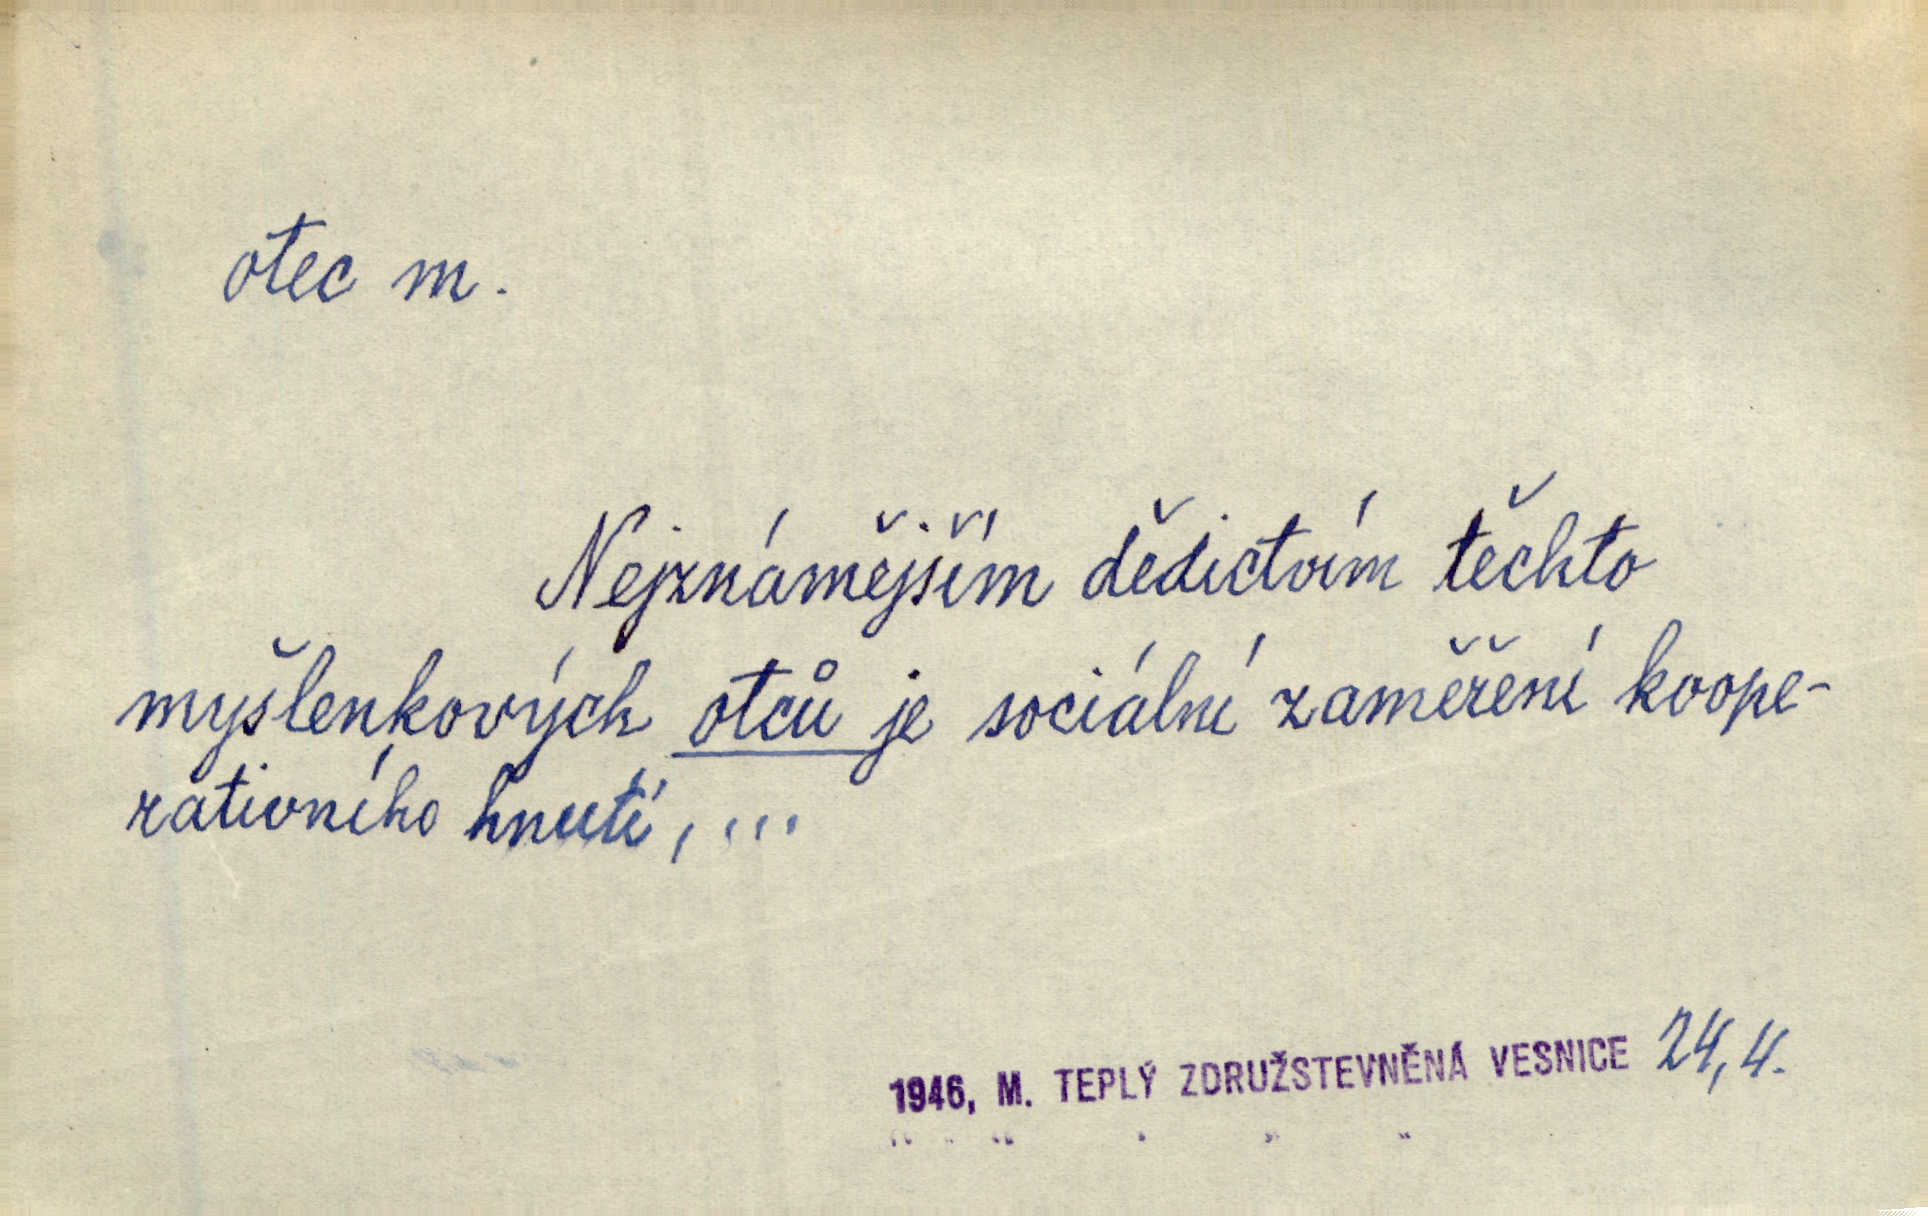 otec m.
Nejznámějším dědictvím těchto
myšlenkových otců je sociální zaměření koope-
rativního hnutí, ...
1946, M. TEPLÝ ZDRUŽSTEVNĚNÁ VESNICE 24, 4.